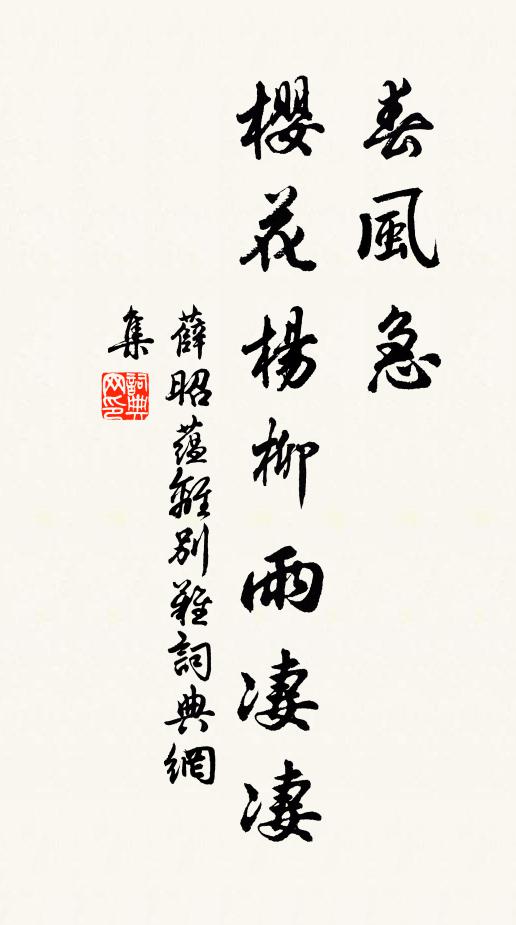 春風急
櫻花楊柳雨凄凄
薛昭蘊離別難詞典網
集
詞典
网印